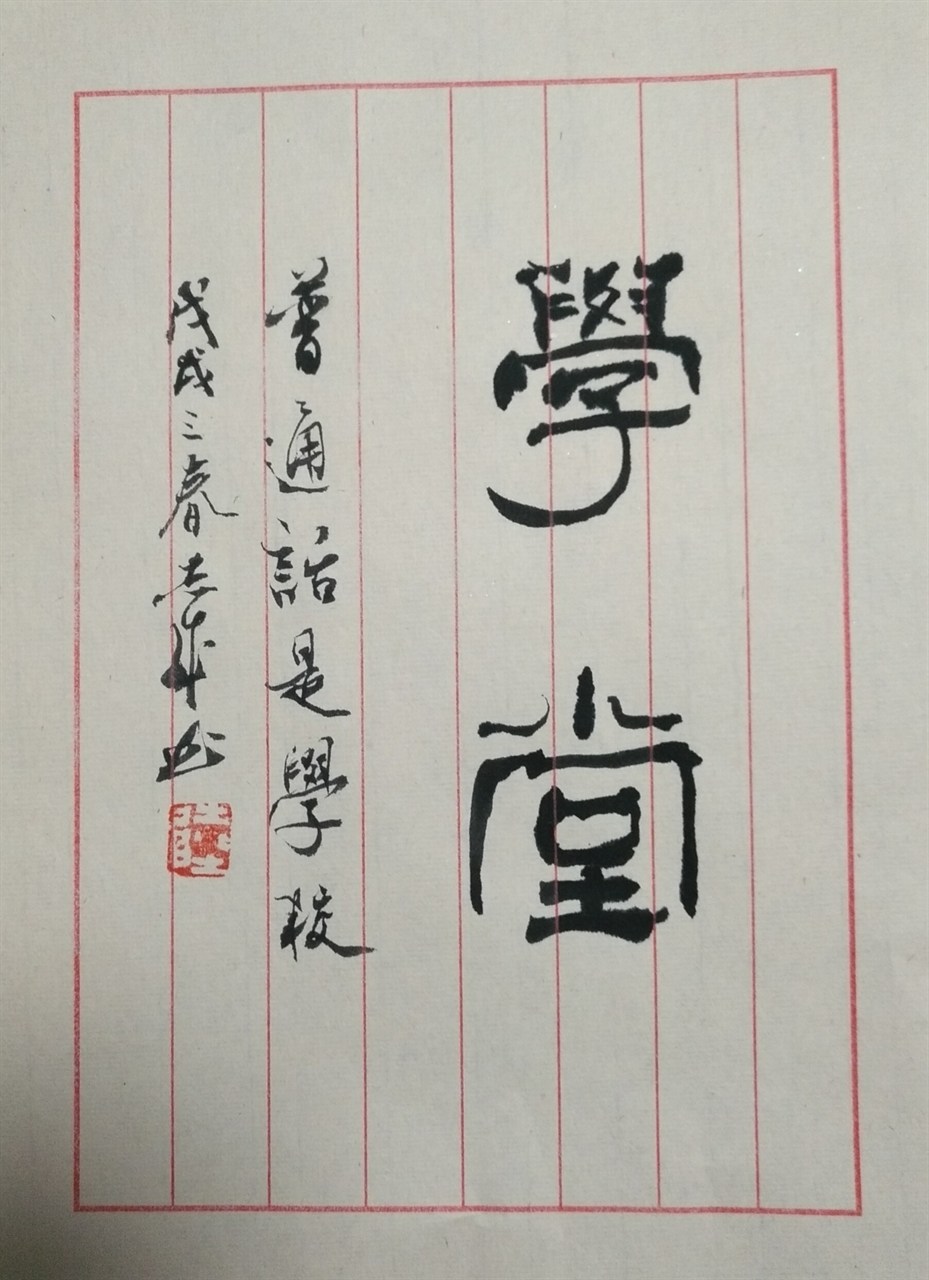 學堂
普通話是學校
戊戌三春志華